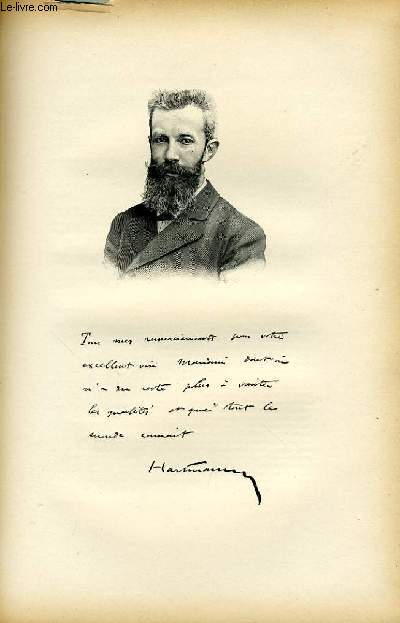 Le-livre.com
Tous mes remerciements pour votre
excellent vin Mariani dont on
n'a du reste plus à vanter
les qualités et que tout le
monde connait
Hartmann